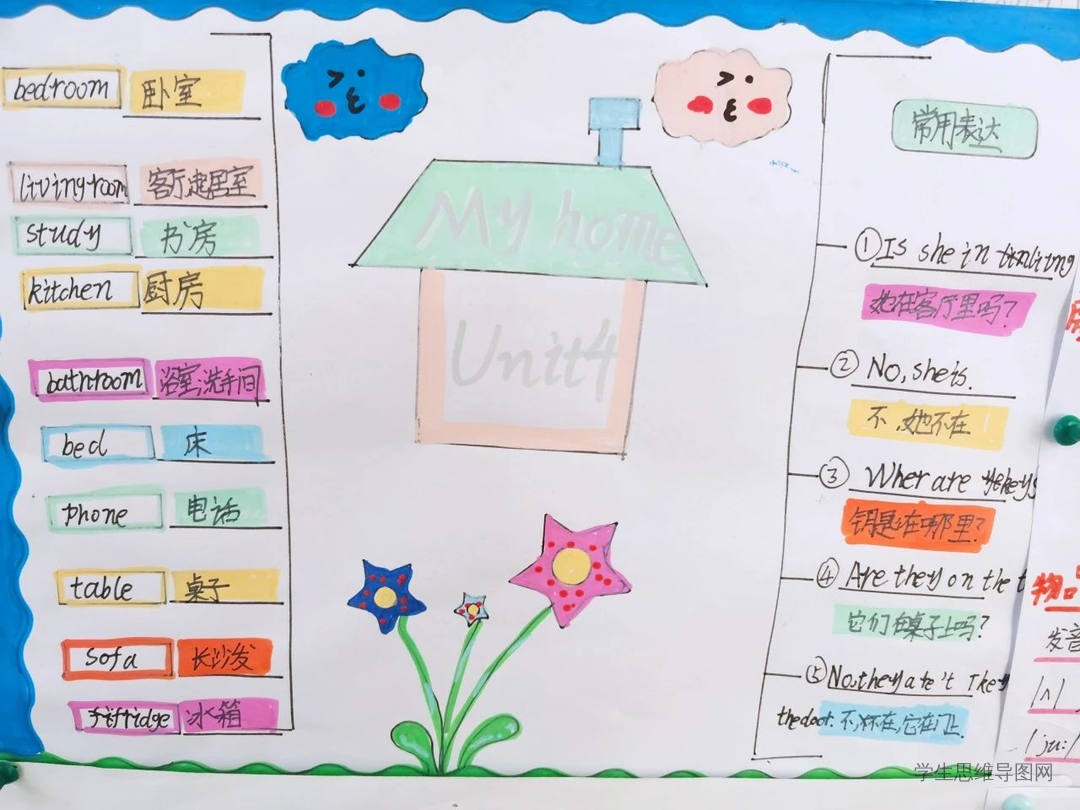 bedroom 卧室
living room 客厅起居室
study 书房
kitchen 厨房
bathroom 浴室,洗手间
bed 床
phone 电话
table 桌子
sofa 长沙发
冰箱
My home
Unit4
常用表达
①Is she in
她在客厅里吗?
②No, she is.
不,她不在
③Wher are
在哪里?
④Are they on the t
它们在桌子上吗?
⑤No, they are't They
the door. 不,不在,它在门上.
物品
发音
/ʌ/
/ju:/
学生思维导图网